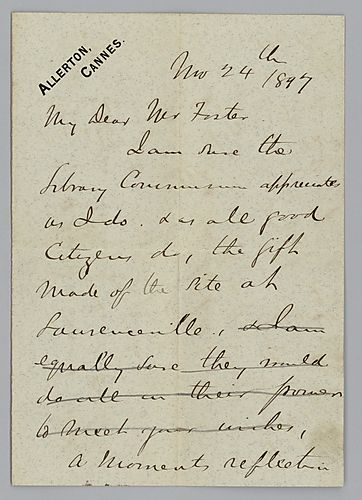 ALLERTON,
CANNES.
Nov 24th /897
My Dear Mr Foster
I am sure the
Library Commission appreciates
as I do. & as all good
Citizens do, the gift
made of the site at
Lawrenceville, & I am
equally sure they would
do all in their power
to meet your wishes,
A moments reflection